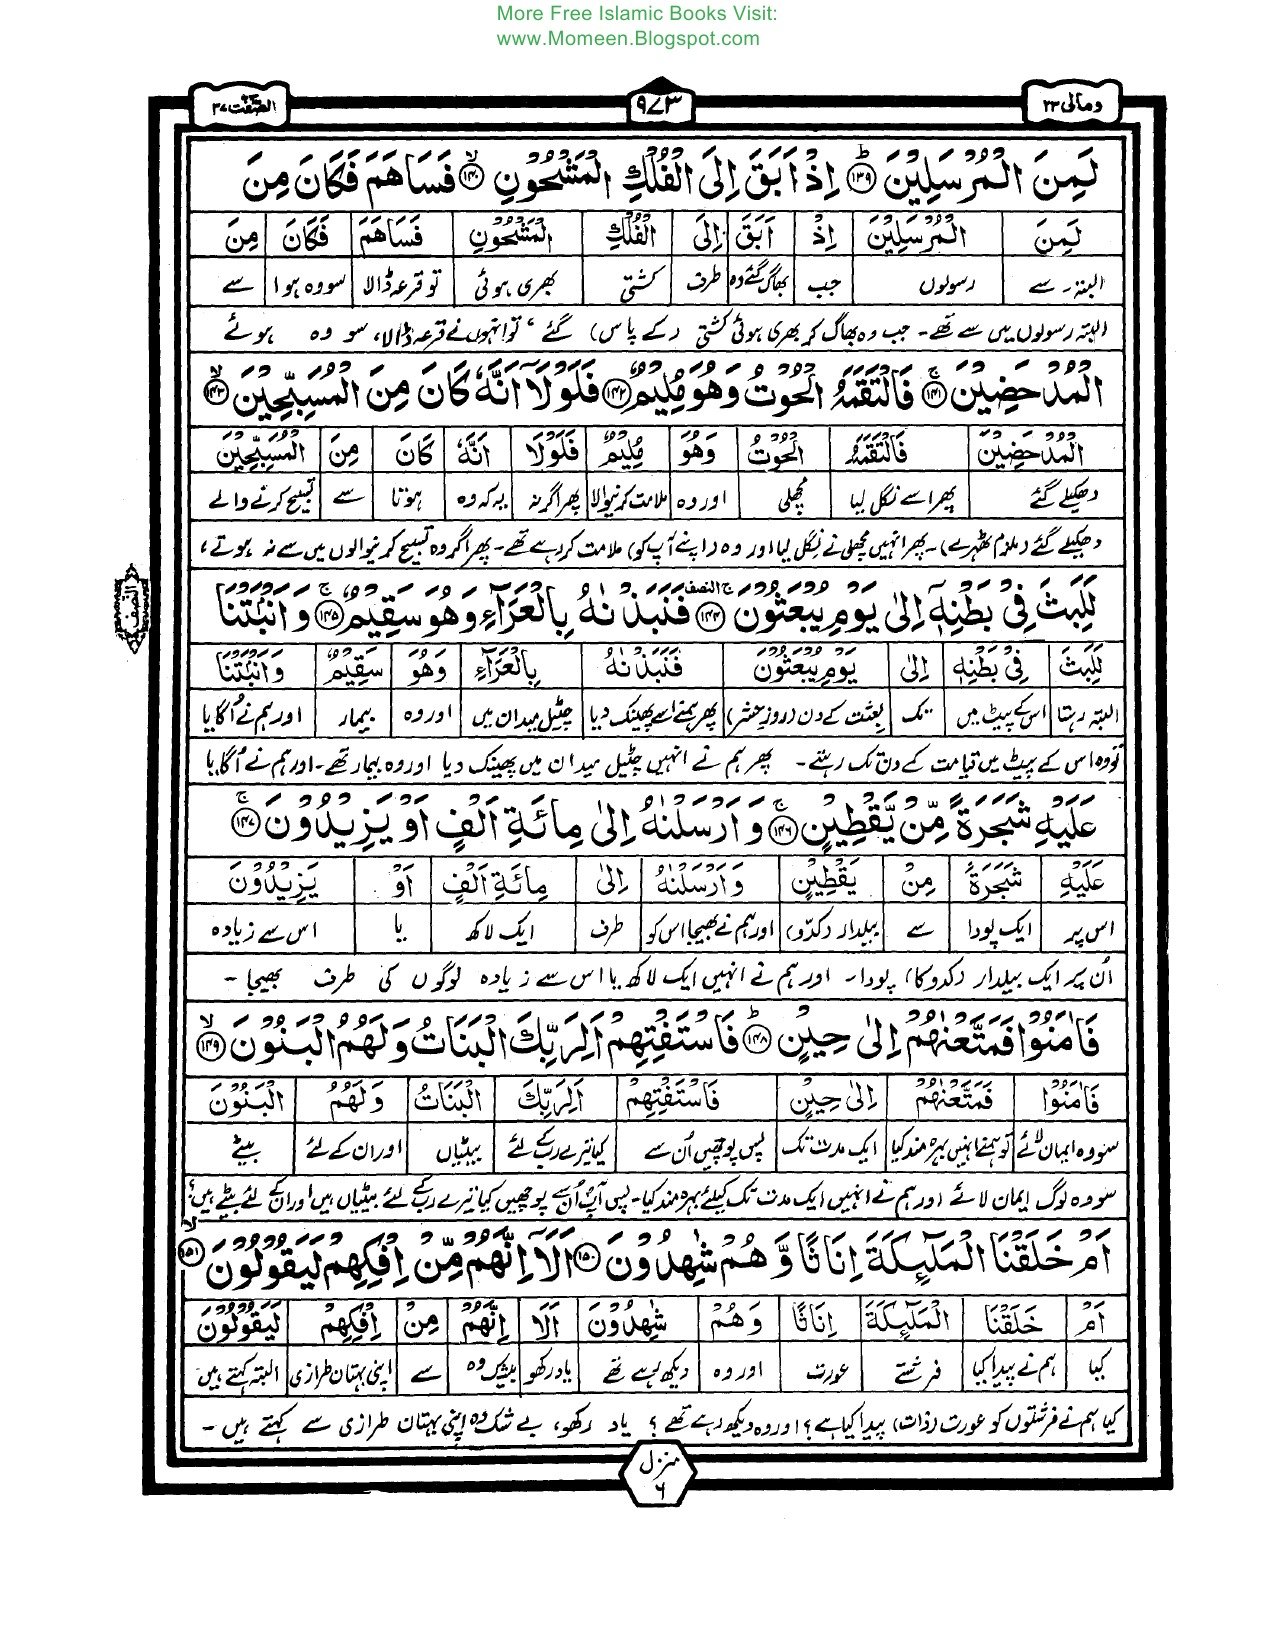 More Free Islamic Books Visit:
www.Momeen.Blogspot.com
ومالی ٢٣ ٩٧٣ الصّٰٓفّٰت ٣٧
لَمِنَ الْمُرْسَلِیْنَ ﴿١٣٩﴾ؕ اِذْ اَبَقَ اِلَی الْفُلْكِ الْمَشْحُوْنِ ﴿١٤٠﴾ۙ فَسَاهَمَ فَكَانَ مِنَ
لَمِنَ الْمُرْسَلِیْنَ اِذْ اَبَقَ اِلَی الْفُلْكِ الْمَشْحُوْنِ فَسَاهَمَ فَكَانَ مِنَ
البتہ۔ سے رسولوں جب بھاگ گئے وہ طرف کشتی بھری ہوئی تو قرعہ ڈالا سو وہ ہوا سے
البتہ رسولوں میں سے تھے۔ جب وہ بھاگ کر بھری ہوئی کشتی (کے پاس) گئے، تو انہوں نے قرعہ ڈالا، سو وہ ہوئے
الْمُدْحَضِیْنَ ﴿١٤١﴾ۚ فَالْتَقَمَهُ الْحُوْتُ وَهُوَ مُلِیْمٌ ﴿١٤٢﴾ فَلَوْلَاۤ اَنَّهٗ كَانَ مِنَ الْمُسَبِّحِیْنَ ﴿١٤٣﴾ۙ
الْمُدْحَضِیْنَ فَالْتَقَمَهُ الْحُوْتُ وَهُوَ مُلِیْمٌ فَلَوْلَا اَنَّهٗ كَانَ مِنَ الْمُسَبِّحِیْنَ
دھکیلے گئے پھر اسے نگل لیا مچھلی اور وہ ملامت کرنیوالا پھر اگر نہ یہ کہ وہ ہوتا سے تسبیح کرنے والے
دھکیلے گئے (ملزم ٹھہرے)۔ پھر انہیں مچھلی نے نگل لیا اور وہ (اپنے آپ کو) ملامت کر رہے تھے۔ پھر اگر وہ تسبیح کرنیوالوں میں سے نہ ہوتے،
لَلَبِثَ فِیْ بَطْنِهٖۤ اِلٰی یَوْمِ یُبْعَثُوْنَ ﴿١٤٤﴾ۚ النصف فَنَبَذْنٰهُ بِالْعَرَآءِ وَهُوَ سَقِیْمٌ ﴿١٤٥﴾ۚ وَاَنْۢبَتْنَا
النصف
لَلَبِثَ فِیْ بَطْنِهٖ اِلٰی یَوْمِ یُبْعَثُوْنَ فَنَبَذْنٰهُ بِالْعَرَآءِ وَهُوَ سَقِیْمٌ وَاَنْۢبَتْنَا
البتہ رہتا اس کے پیٹ میں تک بعثت کے دن (روز حشر) پھر ہمنے اسے پھینک دیا چٹیل میدان میں اور وہ بیمار اور ہم نے اُگایا
تو وہ اس کے پیٹ میں قیامت کے دن تک رہتے۔ پھر ہم نے انہیں چٹیل میدان میں پھینک دیا اور وہ بیمار تھے۔ اور ہم نے اُگایا
عَلَیْهِ شَجَرَةً مِّنْ یَّقْطِیْنٍ ﴿١٤٦﴾ۚ وَاَرْسَلْنٰهُ اِلٰی مِائَةِ اَلْفٍ اَوْ یَزِیْدُوْنَ ﴿١٤٧﴾ۚ
عَلَیْهِ شَجَرَةً مِنْ یَقْطِیْنٍ وَاَرْسَلْنٰهُ اِلٰی مِائَةِ اَلْفٍ اَوْ یَزِیْدُوْنَ
اس پر ایک پودا سے بیلدار (کدّو) اور ہم نے بھیجا اس کو طرف ایک لاکھ یا اس سے زیادہ
اُن پر ایک بیلدار (کدو کا) پودا۔ اور ہم نے انہیں ایک لاکھ یا اس سے زیادہ لوگوں کی طرف بھیجا ۔
فَاٰمَنُوْا فَمَتَّعْنٰهُمْ اِلٰی حِیْنٍ ﴿١٤٨﴾ؕ فَاسْتَفْتِهِمْ اَلِرَبِّكَ الْبَنَاتُ وَلَهُمُ الْبَنُوْنَ ﴿١٤٩﴾ۙ
فَاٰمَنُوْا فَمَتَّعْنٰهُمْ اِلٰی حِیْنٍ فَاسْتَفْتِهِمْ اَلِرَبِّكَ الْبَنَاتُ وَلَهُمُ الْبَنُوْنَ
سو وہ ایمان لائے تو ہمنے انہیں بہرہ مند کیا ایک مدت تک پس پوچھیں اُن سے کیا تیرے رب کے لئے بیٹیاں اور ان کے لئے بیٹے
سو وہ لوگ ایمان لائے اور ہم نے انہیں ایک مدت تک کیلئے بہرہ مند کیا۔ پس آپ اُن سے پوچھیں کیا تیرے رب کے لئے بیٹیاں ہیں اور ان کے لئے بیٹے ہیں؟
اَمْ خَلَقْنَا الْمَلٰٓىِٕكَةَ اِنَاثًا وَّهُمْ شٰهِدُوْنَ ﴿١٥٠﴾ اَلَاۤ اِنَّهُمْ مِّنْ اِفْكِهِمْ لَیَقُوْلُوْنَ ﴿١٥١﴾ۙ
اَمْ خَلَقْنَا الْمَلٰٓىِٕكَةَ اِنَاثًا وَهُمْ شٰهِدُوْنَ اَلَا اِنَّهُمْ مِنْ اِفْكِهِمْ لَیَقُوْلُوْنَ
کیا ہم نے پیدا کیا فرشتے عورت اور وہ دیکھ رہے تھے یاد رکھو بیشک وہ سے اپنی بہتان طرازی البتہ کہتے ہیں
کیا ہم نے فرشتوں کو عورت (ذات) پیدا کیا ہے؟ اور وہ دیکھ رہے تھے؟ یاد رکھو، بے شک وہ اپنی بہتان طرازی سے کہتے ہیں ۔
منزل
٦